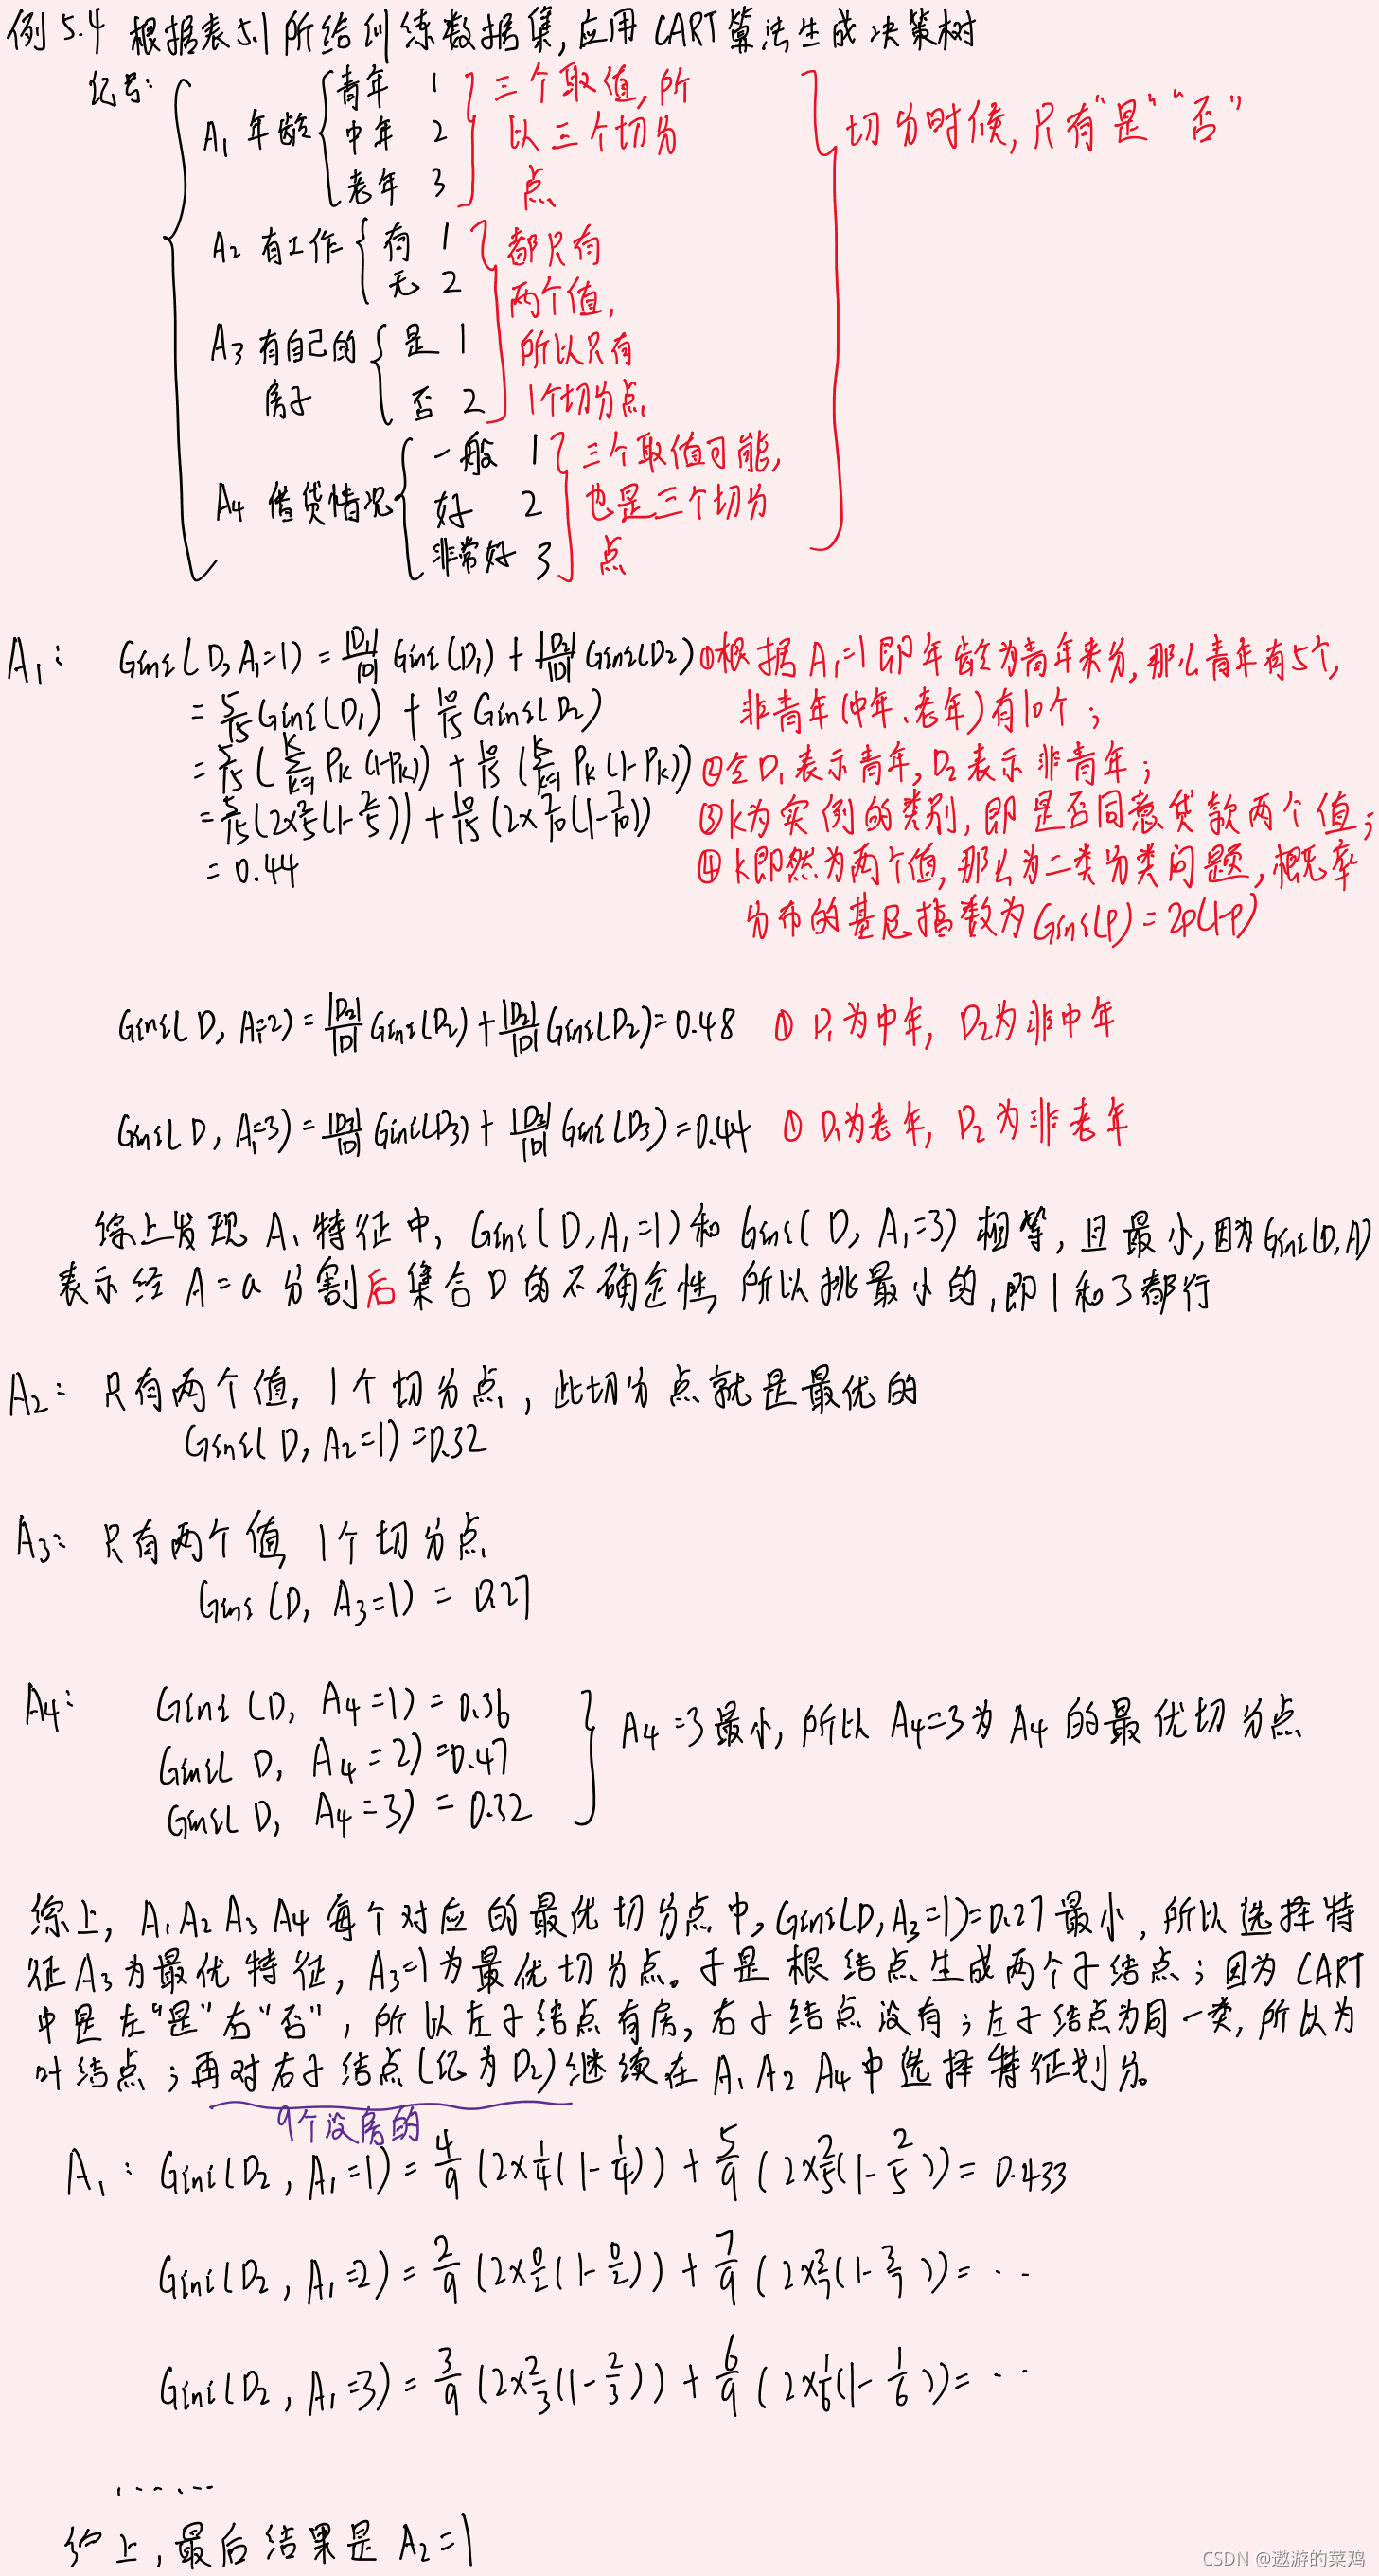 例5.4 根据表5.1所给训练数据集,应用CART算法生成决策树
记号:
A₁ 年龄 { 青年 1 中年 2 老年 3
三个取值,所以三个切分点
A₂ 有工作 { 有 1 无 2
A₃ 有自己的房子 { 是 1 否 2
都只有两个值,所以只有1个切分点
A₄ 借贷情况 { 一般 1 好 2 非常好 3
三个取值可能,也是三个切分点
切分时候,只有"是""否"
A₁: Gini(D,A₁=1) = |D₁|/|D| Gini(D₁) + |D₂|/|D| Gini(D2)
= 5/15 Gini(D₁) + 10/15 Gini(D₂)
= 5/15 (∑_{k=1}^{K} Pk(1-Pk)) + 10/15 (∑_{k=1}^{K} Pk(1-Pk))
= 5/15 (2×2/5(1-2/5)) + 10/15 (2×7/10(1-7/10))
= 0.44
①根据A₁=1即年龄为青年来分,那么青年有5个,
非青年(中年、老年)有10个;
②令D₁表示青年,D₂表示非青年;
③k为实例的类别,即是否同意贷款两个值;
④k即然为两个值,那么为二类分类问题,概率
分布的基尼指数为Gini(p)=2p(1-p)
Gini(D, A₁=2) = |D₂|/|D| Gini(D₂) + |D₂|/|D| Gini(D₂) = 0.48 ① D₁为中年, D₂为非中年
Gini(D, A₁=3) = |D3|/|D| Gini(D3) + |D3|/|D| Gini(D3) = 0.44 ① D₁为老年, D₂为非老年
综上发现A₁特征中, Gini(D,A₁=1)和Gini(D, A₁=3)相等,且最小,因为Gini(D,A)
表示经A=a分割后集合D的不确定性,所以挑最小的,即1和3都行
A₂: 只有两个值, 1个切分点,此切分点就是最优的
Gini(D, A₂=1)=0.32
A₃: 只有两个值,1个切分点
Gini(D, A₃=1) = 0.27
A₄: Gini(D, A₄=1)=0.36
Gini(D, A₄=2)=0.47
Gini(D, A₄=3) = 0.32
A₄=3最小,所以A₄=3为A₄的最优切分点
综上, A₁A₂A₃A₄每个对应的最优切分点中,Gini(D,A₃=1)=0.27最小,所以选择特
征A₃为最优特征,A₃=1为最优切分点。于是根结点生成两个子结点;因为CART
中是左"是"右"否",所以左子结点有房,右子结点没有;左子结点为同一类,所以为
叶结点;再对右子结点(记为D₂)继续在A₁A₂A₄中选择特征划分。
9个没房的
A₁: Gini(D₂, A₁=1) = 4/9 (2×1/4(1-1/4)) + 5/9 (2×2/5(1-2/5)) = 0.433
Gini(D₂, A₁=2) = 2/9 (2×0/2(1-0/2)) + 7/9 (2×3/7(1-3/7)) = ··
Gini(D₂, A₁=3) = 3/9 (2×2/3(1-2/3)) + 6/9 (2×1/6(1-1/6)) = ··
······
综上,最后结果是A₂=1
CSDN @遨游的菜鸡